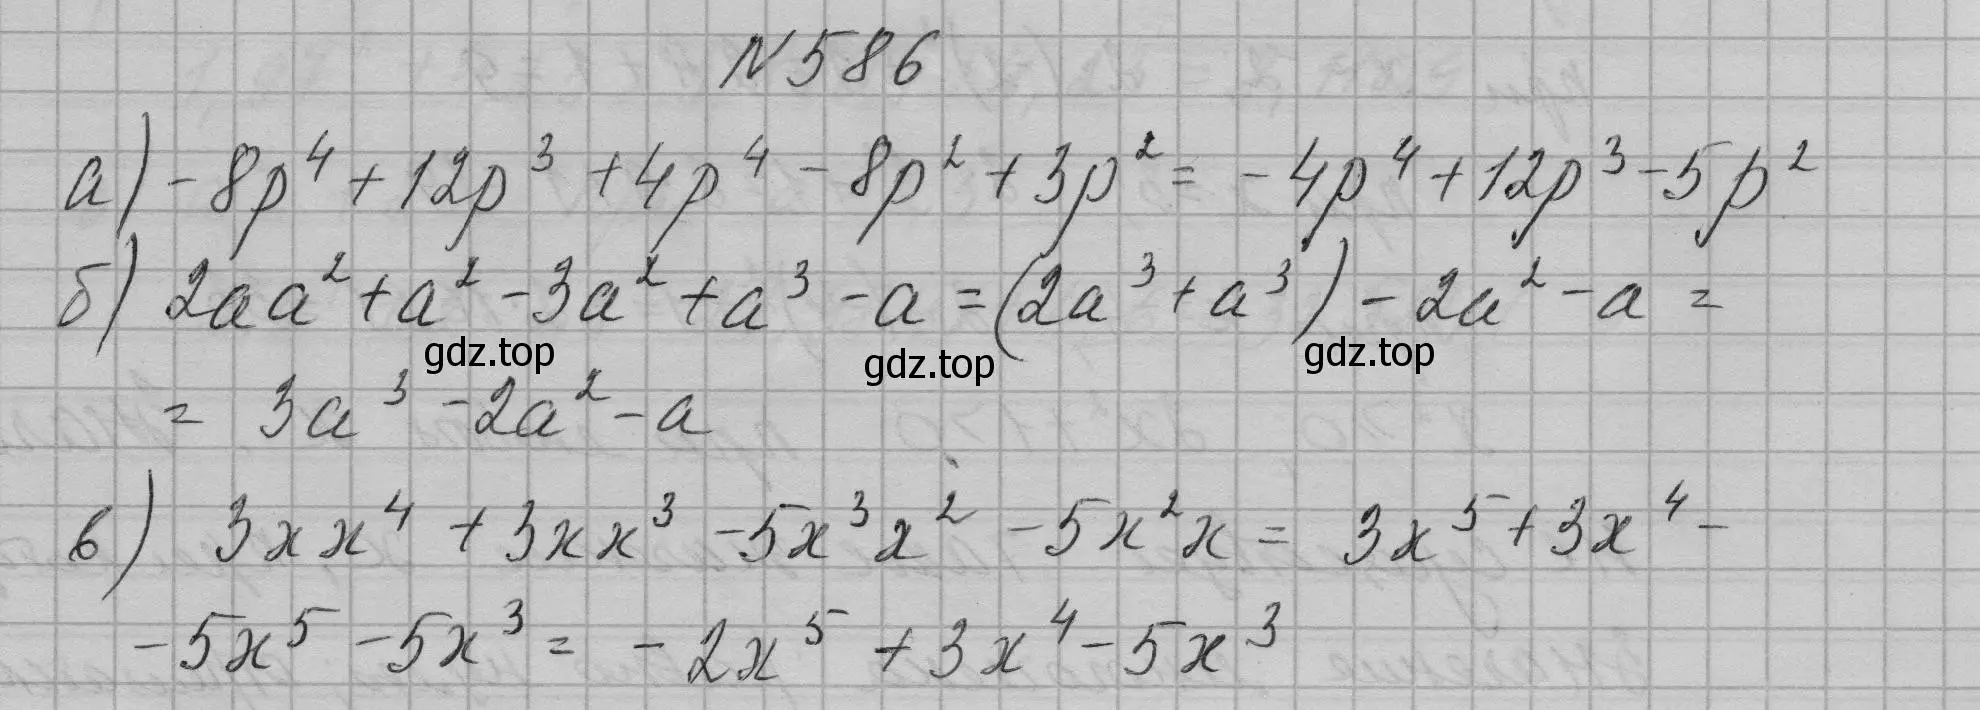 №586
а) -8p⁴ + 12p³ + 4p⁴ - 8p² + 3p² = -4p⁴ + 12p³ - 5p²
б) 2aa² + a² - 3a² + a³ - a = (2a³ + a³) - 2a² - a =
gdz.top gdz.top gdz.top
= 3a³ - 2a² - a
в) 3xx⁴ + 3xx³ - 5x³x² - 5x²x = 3x⁵ + 3x⁴ -
- 5x⁵ - 5x³ = -2x⁵ + 3x⁴ - 5x³